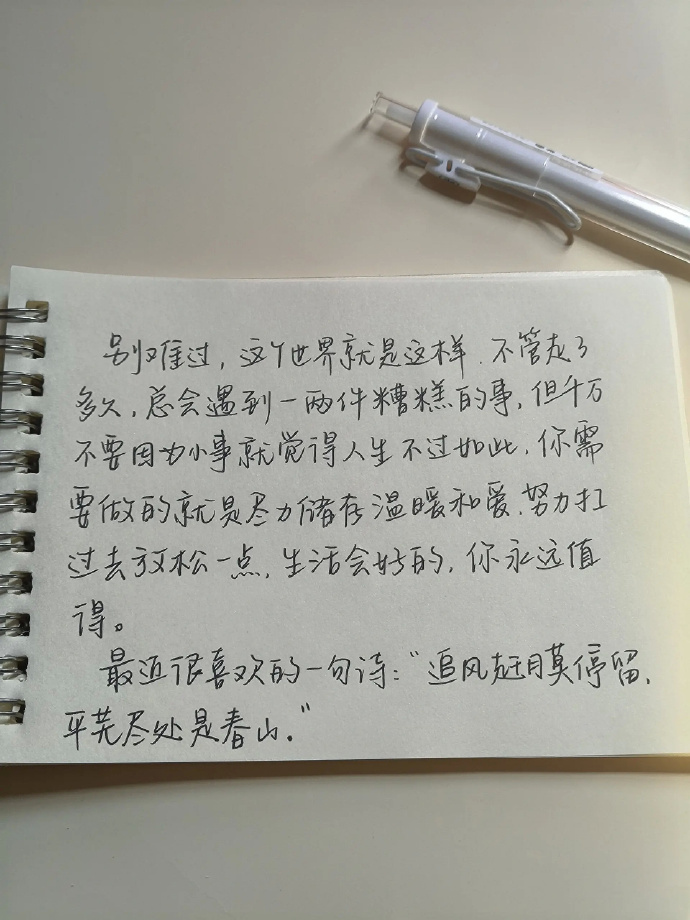 别难过，这个世界就是这样.不管走了
多久，总会遇到一两件糟糕的事，但千万
不要因为小事就觉得人生不过如此，你需
要做的就是尽力储存温暖和爱.努力扛
过去放松一点，生活会好的，你永远值
得。
最近很喜欢的一句诗：“追风赶月莫停留，
平芜尽处是春山.”